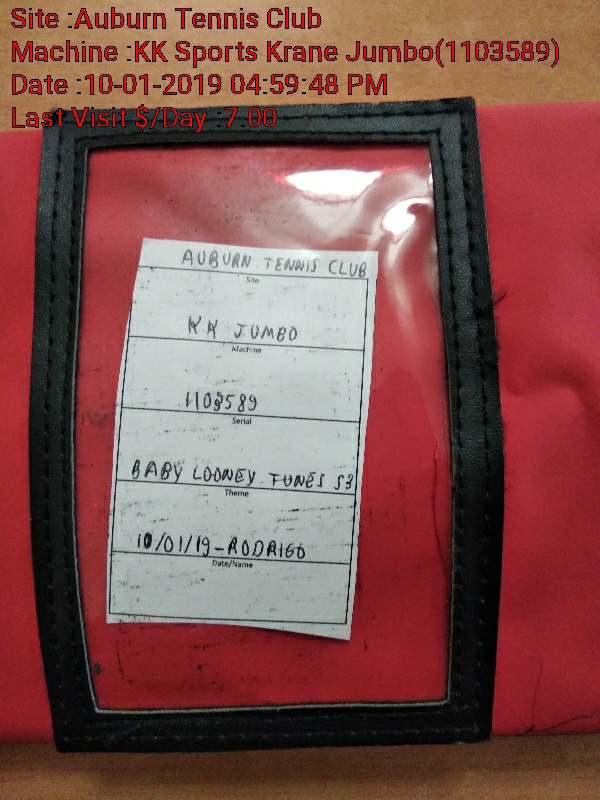 Site :Auburn Tennis Club
Machine :KK Sports Krane Jumbo(1103589)
Date :10-01-2019 04:59:48 PM
Last Visit $/Day :7.00
AUBURN TENNIS CLUB
Site
KK JUMBO
Machine
1103589
Serial
BABY LOONEY TUNES S3
Theme
10/01/19-RODRIGO
Date/Name